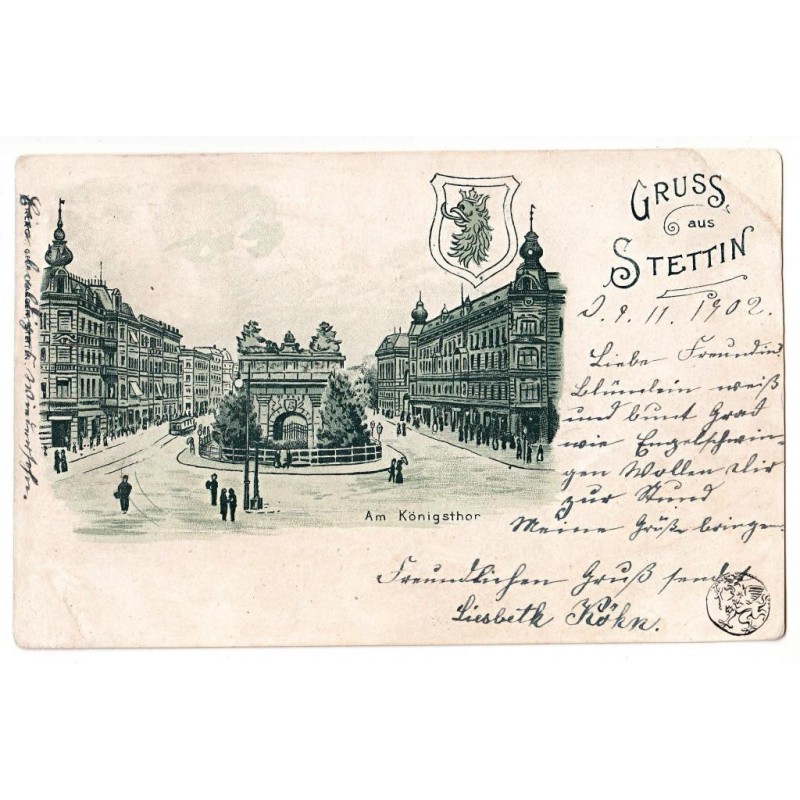 GRUSS
aus
STETTIN
D. 9. 11. 1902.
Liebe Freundin
Blümlein weiß
und bunt Grad
wie Engelschwin-
gen Wollen dir
zur Stund
Meine Grüße bringe
Freundlichen Gruß sendet
Liesbeth Köhn.
Am Königsthor